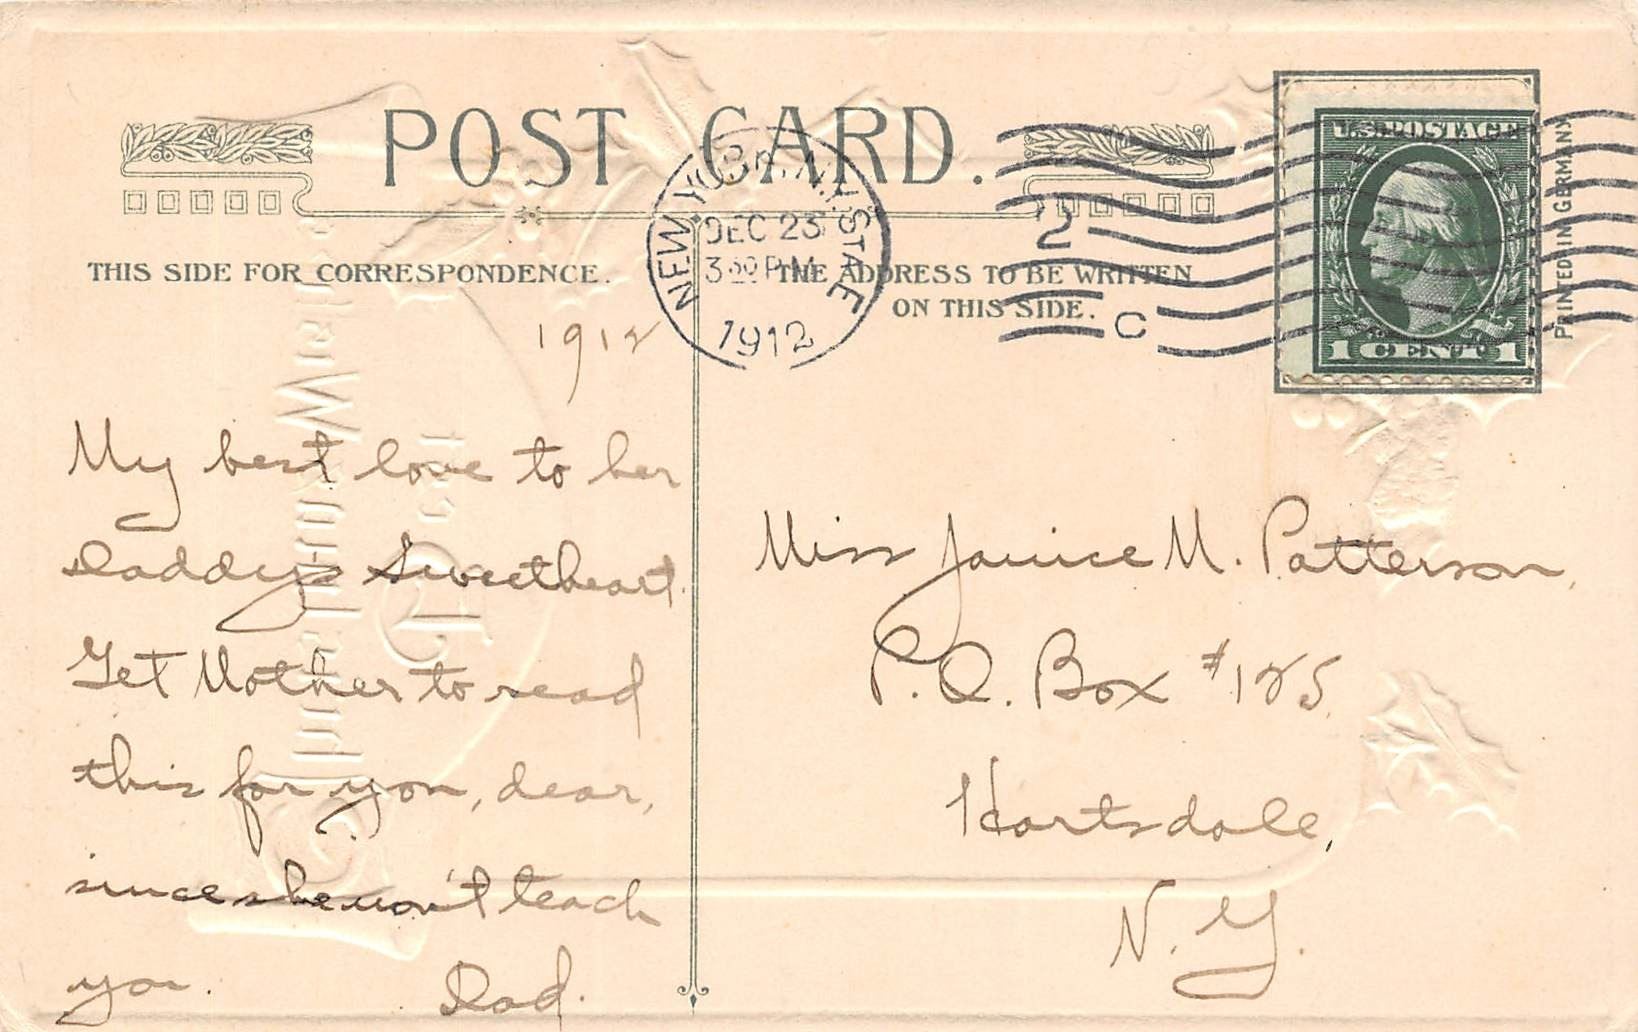 POST CARD.
THIS SIDE FOR CORRESPONDENCE.
THE ADDRESS TO BE WRITTEN
ON THIS SIDE.
NEW YORK, N.Y. STA E
DEC 23
3 30 PM
1912
2
C
U.S. POSTAGE
1 CENT 1
PRINTED IN GERMANY
1912
My best love to her
Daddys Sweetheart.
Get Mother to read
this for you, dear,
since she won't teach
you. Dad.
Miss Janice M. Patterson,
P.O. Box #125
Hartsdale,
N.Y.